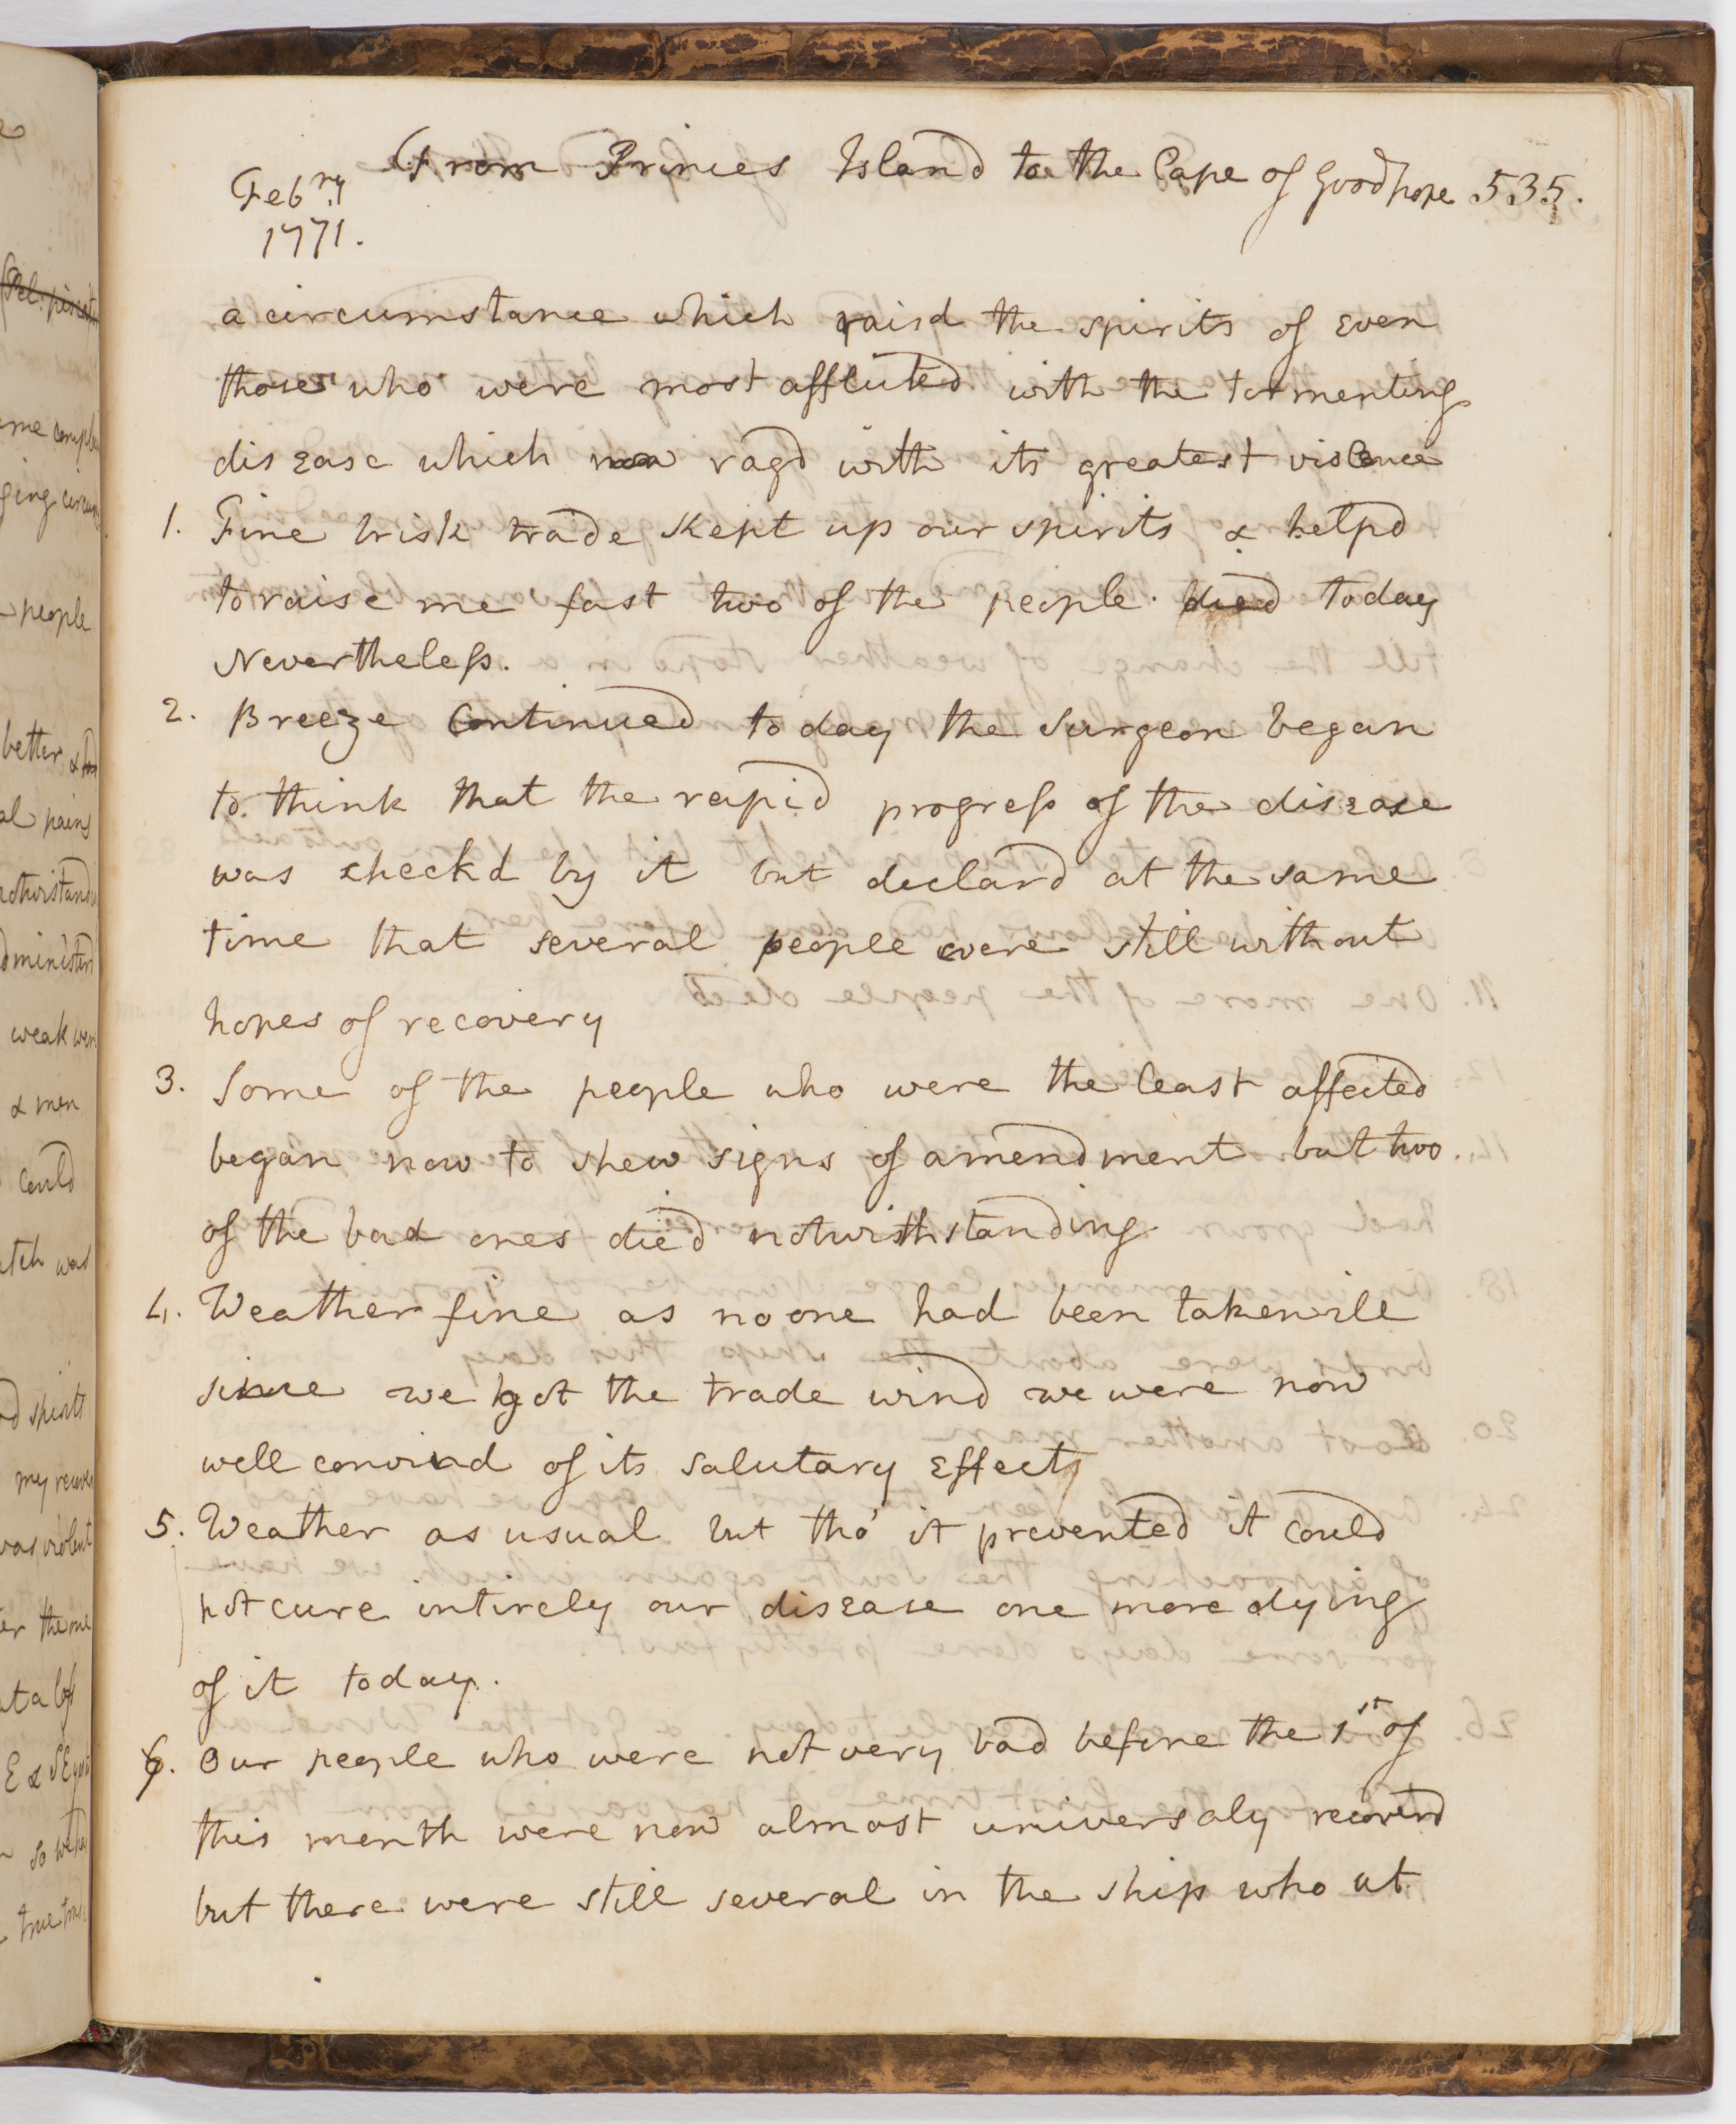 From Princes Island to the Cape of Good hope 535.
Feb.ry
1771.
a circumstance which raisd the spirits of even
those who were most afflicted with the tormenting
disease which now ragd with its greatest violence
1. Fine brisk trade kept up our spirits & helpd
to raise me fast two of the people died today
Nevertheless.
2. Breeze Continued today the surgeon began
to think that the rapid progress of the disease
was checkd by it but declard at the same
time that several people were still without
hopes of recovery
3. Some of the people who were the least affected
began now to shew signs of amendment but two
of the bad ones died notwithstanding
4. Weather fine as no one had been taken ill
since we got the trade wind we were now
well convincd of its salutary effects
5. Weather as usual but tho' it prevented it could
not cure intirely our disease one more dying
of it today.
6. Our people who were not very bad before the 1st of
this month were now almost universaly recoverd
but there were still several in the ship who at
me compla
ging circum
people
better &
al pains
notwistand
dministerd
weak wer
& men
could
atch was
d spirits
my recove
was violent
er the me
at a loss
E & SE
so we ha
true tra